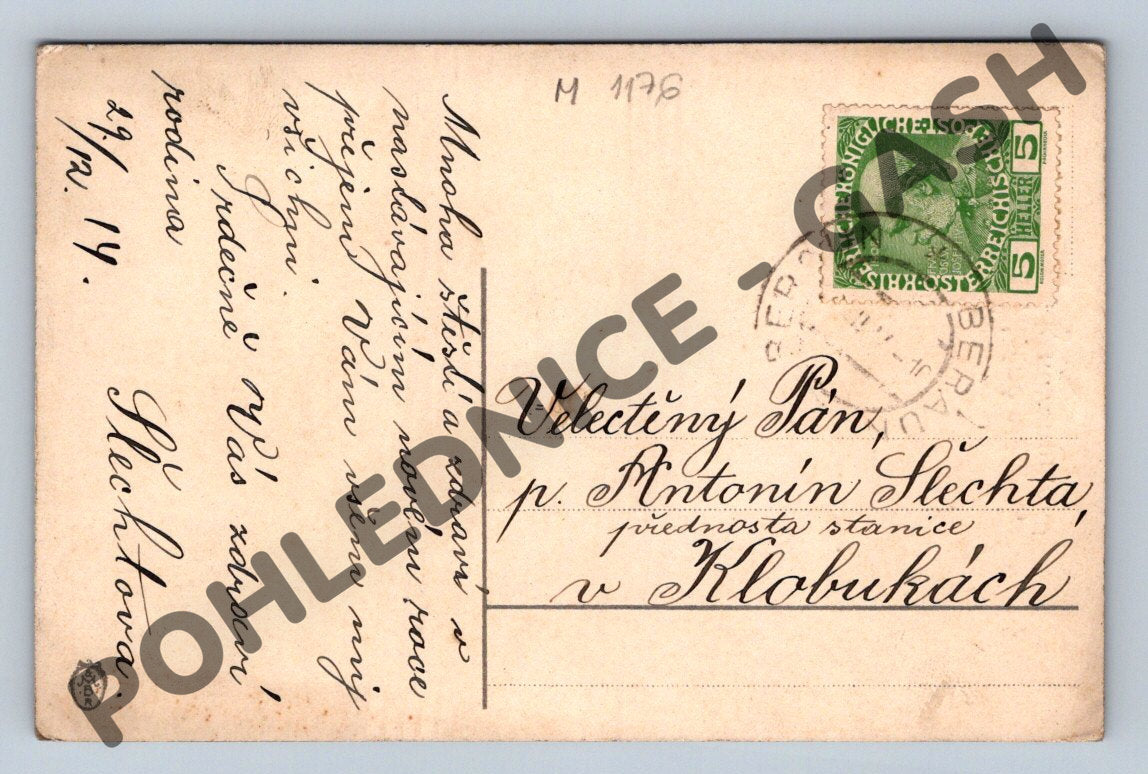 M 1176
Mnoho štěstí a zdraví v
naslávajícím novém roce
přejem Vám všem my
všichni.
Srdečně i Vás zdraví
rodina Šlechtova.
29./12. 14.
KAIS. KÖNIGLICHE ÖSTERREICHISCHE
5 HELLER 5
BERAUN
BEROUN
Velectěný Pán,
p. Antonín Šlechta,
přednosta stanice
v Klobukách
POHLEDNICE - CASH